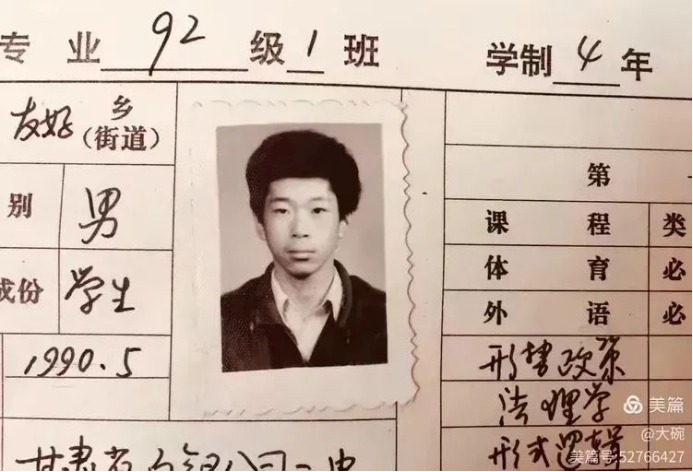 专业 92 级 1 班 学制 4 年
友好 乡
(街道)
第
别 男
课程 类
体育 必
成份 学生
外语 必
1990.5
形势政策
法理学
形式逻辑
甘肃省白银公司二中
美篇
@大碗
美篇号:52766427